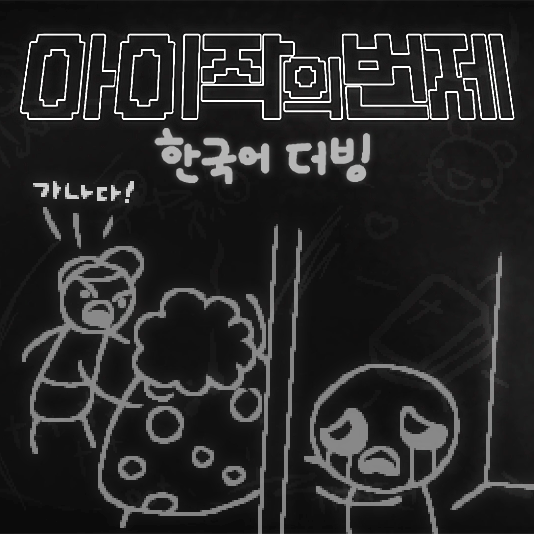 아이작의번제
한국어 더빙
가나다!